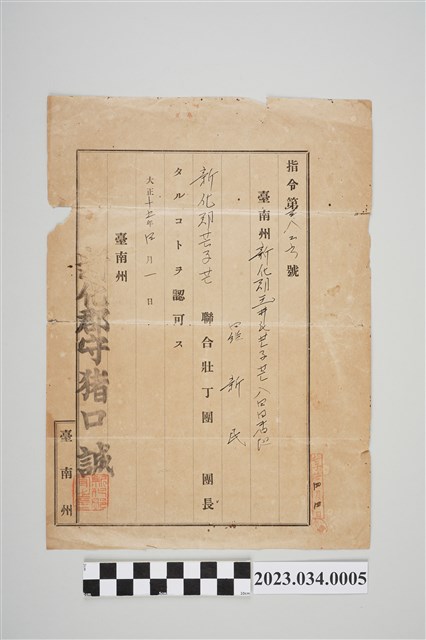 指令第 號
臺南州新化郡玉井庄芒子芒 番地
羅新民
新化郡芒子芒聯合壯丁團團長
タルコトヲ認可ス
大正十 年四月一日
臺南州
新化郡守猪口誠
臺南州
2023.034.0005